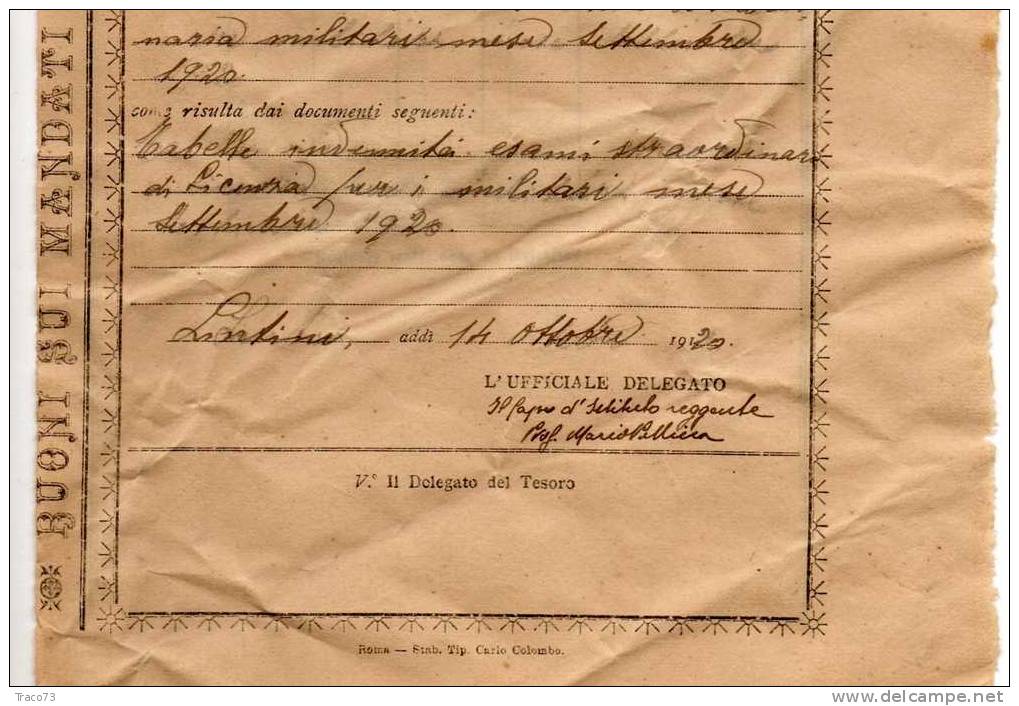 BUONI SUI MANDATI
naria militari mese Settembre
1920.
come risulta dai documenti seguenti:
Tabelle indennità esami straordinari
di Licenza per i militari mese
Settembre 1920.
Lentini, addì 14 Ottobre 1920.
L'UFFICIALE DELEGATO
Il Capo d'Istituto reggente
Prof. Mario
V.° Il Delegato del Tesoro
Roma — Stab. Tip. Carlo Colombo.
Traco73
delcampe.net